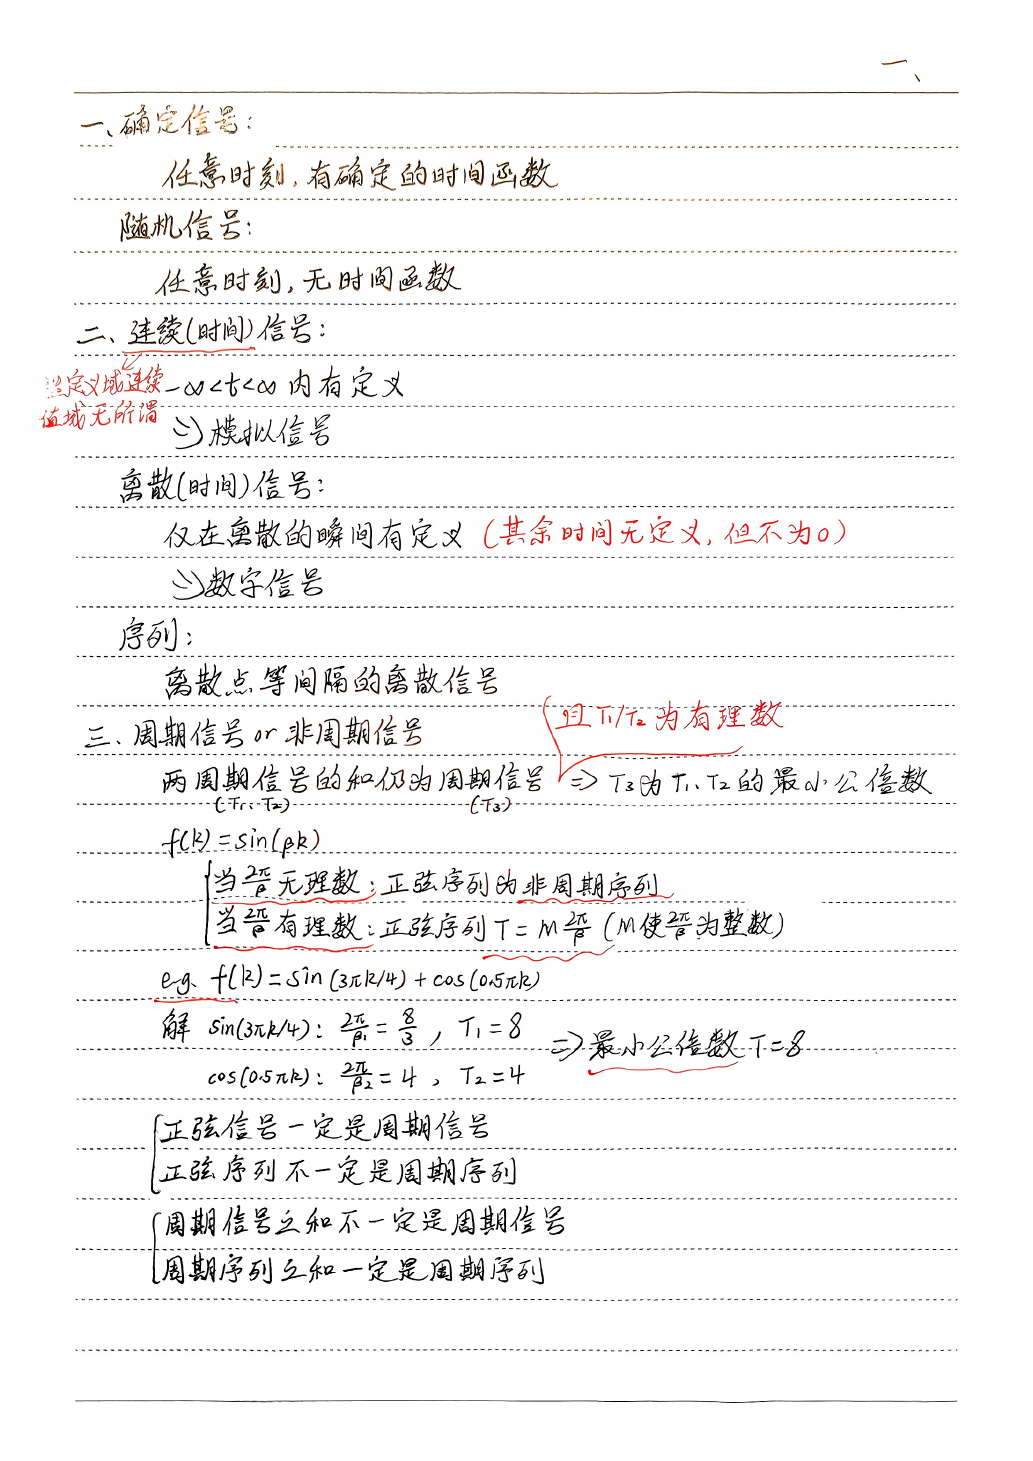 一、
一、确定信号:
任意时刻,有确定的时间函数
随机信号:
任意时刻,无时间函数
二、连续(时间)信号:
定义域连续
值域无所谓
-∞<t<∞ 内有定义
模拟信号
离散(时间)信号:
仅在离散的瞬间有定义 (其余时间无定义,但不为0)
数字信号
序列:
离散点等间隔的离散信号
且 T₁/T₂ 为有理数
三、周期信号 or 非周期信号
两周期信号的和仍为周期信号 => T₃为 T₁、T₂ 的最小公倍数
(T₁、T₂) (T₃)
f(k)=sin(βk)
当2π/β无理数:正弦序列为非周期序列
当2π/β有理数:正弦序列 T=M2π/β (M使2π/β为整数)
e.g. f(k)=sin(3πk/4)+cos(0.5πk)
解 sin(3πk/4): 2π/β₁=8/3, T₁=8
=>最小公倍数 T=8
cos(0.5πk): 2π/β₂=4, T₂=4
正弦信号一定是周期信号
正弦序列不一定是周期序列
周期信号之和不一定是周期信号
周期序列之和一定是周期序列